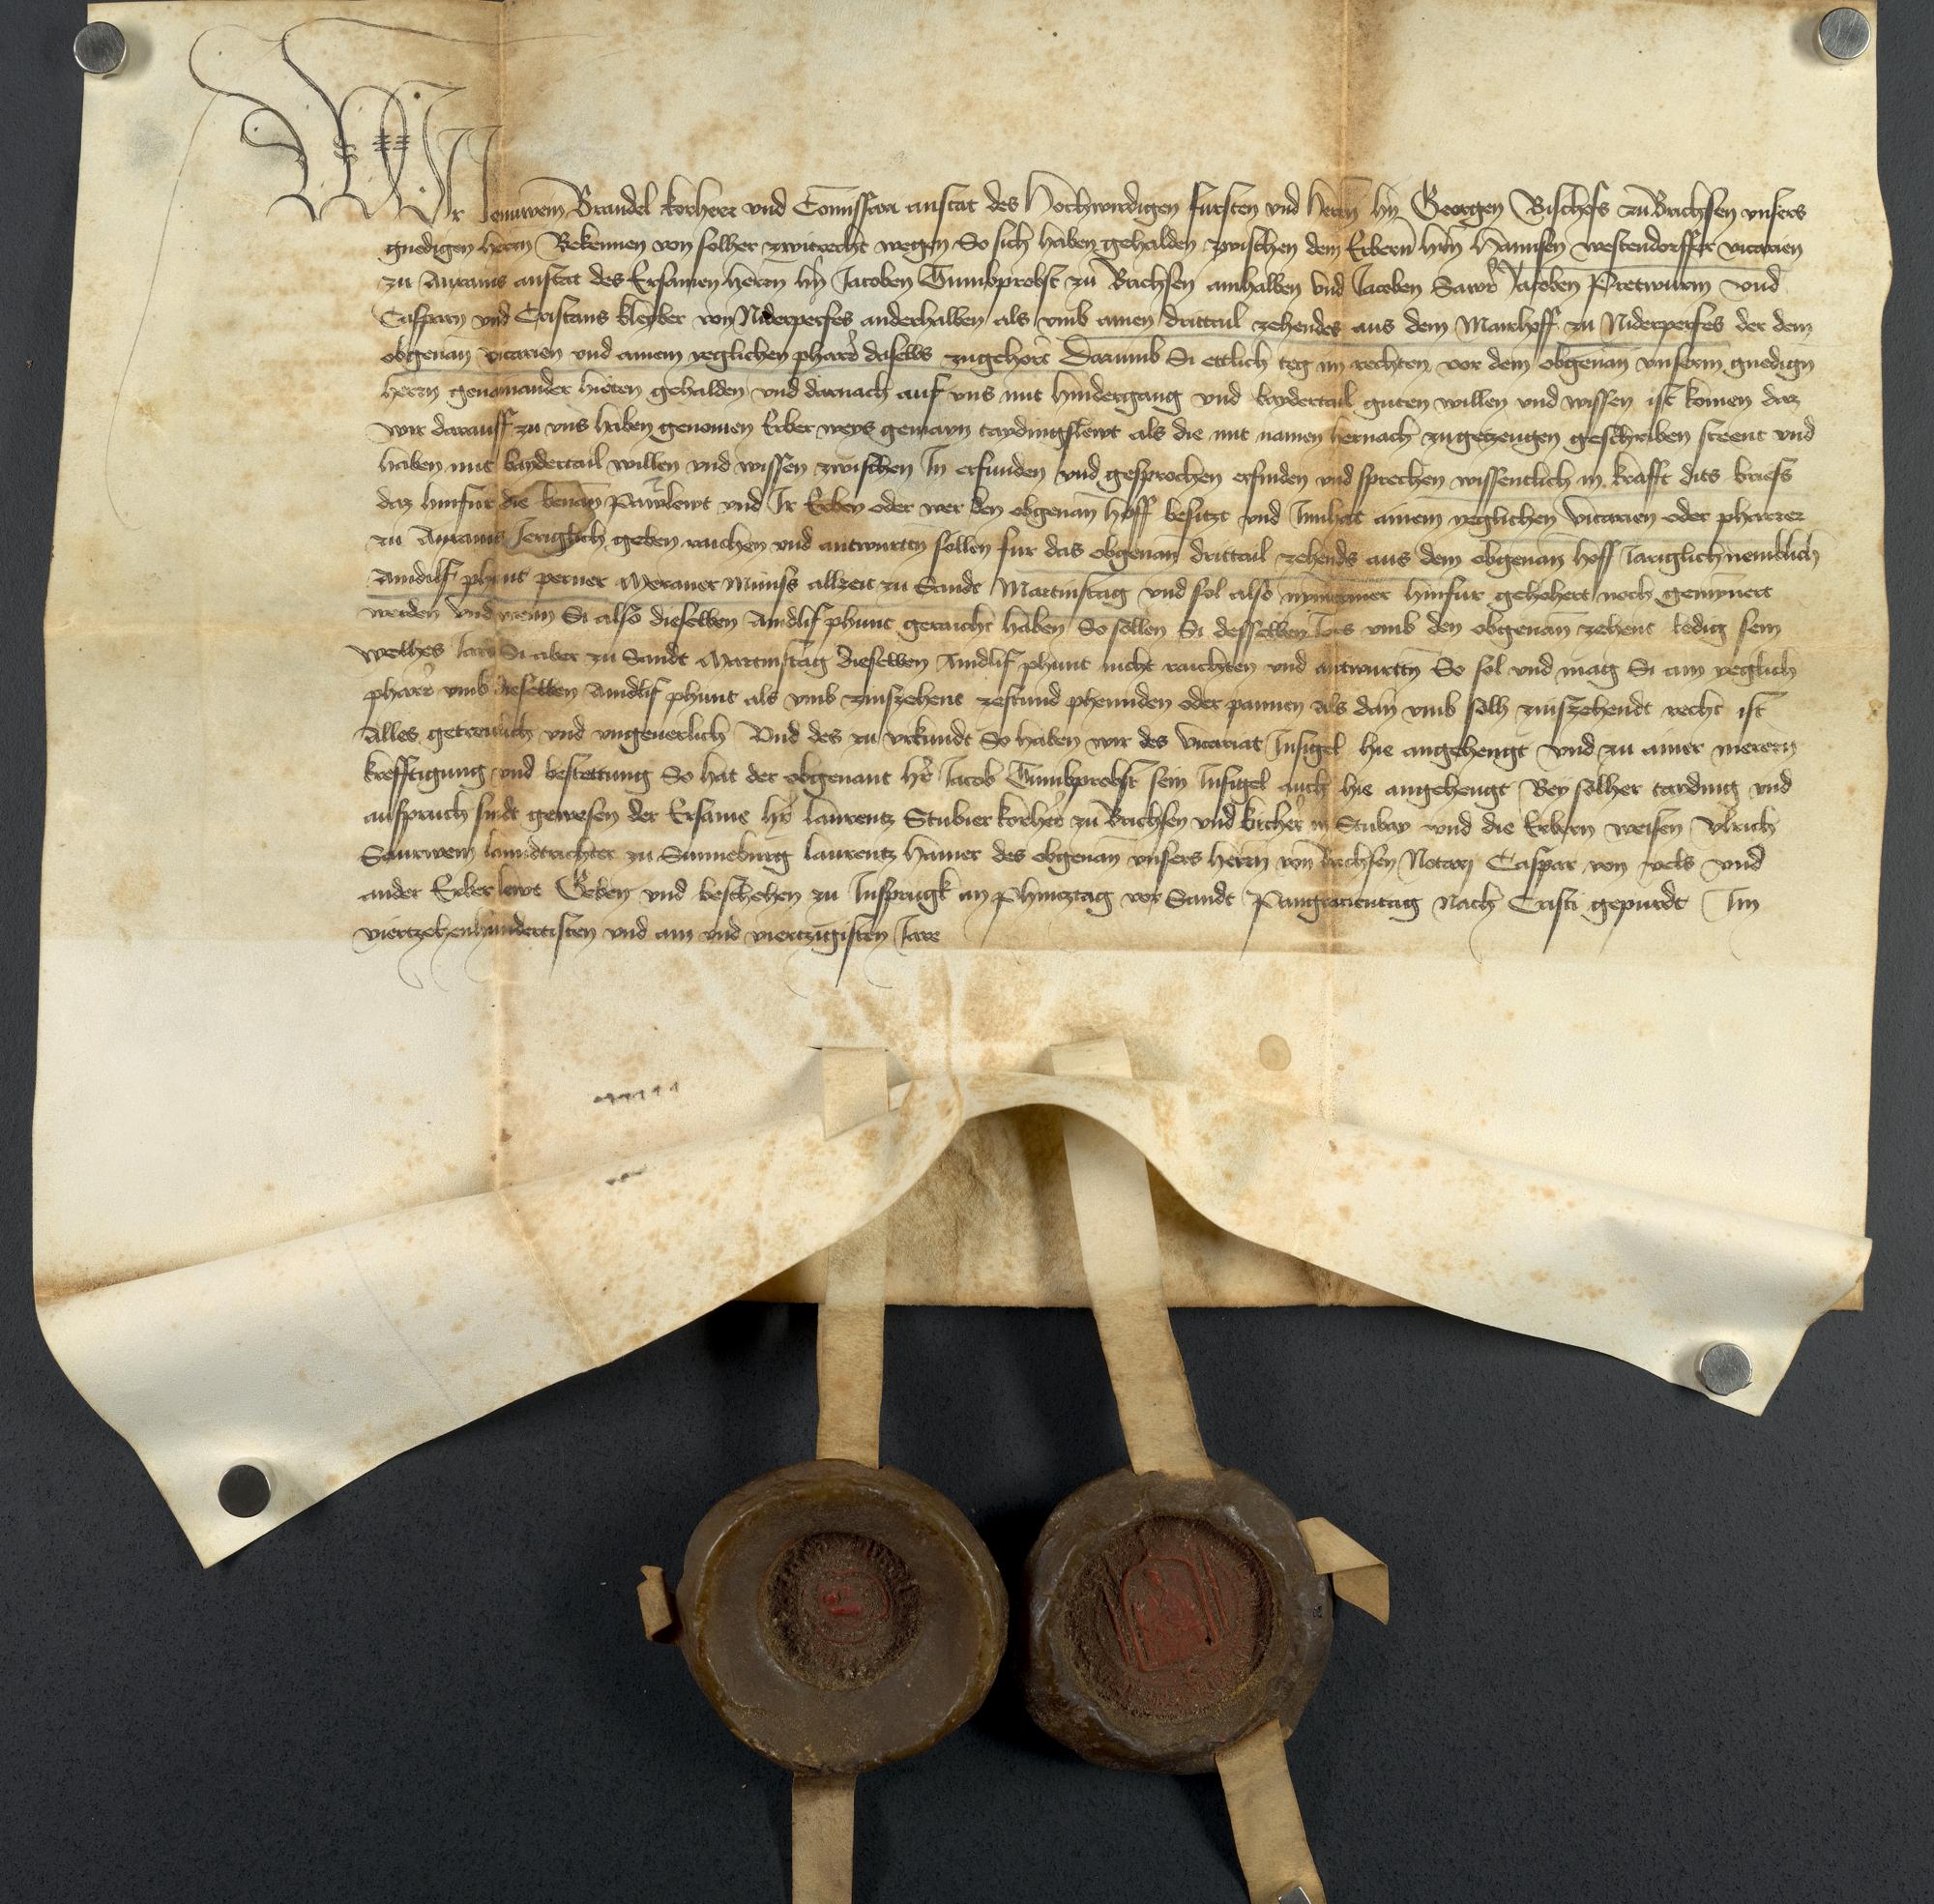 Wir Brandel korherr vnd Comissari anstat des Hochwirdigen fursten vnd herrn hern Georgen Bischofs zu Brichsen vnsers
gnedigen herrn Bekennen von solher zwitrecht wegen So sich haben gehalden zwischen dem Erbern hern Hannsen westendorffer vicarien
zu Axams anstat des Ersamen herrn hern Jacoben Tumbprobst zu Brichsen ainhalben vnd Jacoben Jacoben Pretwurm vnd
Casparn vnd Cristans kleyber von Niderperfes anderhalben als vmb ainen drittail zehendes aus dem Mairhoff zu Niderperfes der dem
obgenan vicarien vnd ainem yeglichen pharrer daselbs zugehort Darumb Si ettlich teg im rechten vor dem obgenan vnserm gnedign
herrn genainander hieten gehalden vnd darnach auf vns mit hindergang vnd baydertail guten willen vnd wissen ist komen daz
wir darauff zu vns haben genomen Erber weys gemayn taydingslewt als die mit namen hernach zugetzeugen geschriben steent vnd
haben mit baydertail willen vnd wissen zwischen In erfunden vnd gesprochen erfinden vnd sprechen wissentlich in krafft dits briefs
daz hinfur die benan Pawlewt vnd Ir Erben oder wer den obgenan hoff besitzt vnd Innhat ainem yeglichen vicarien oder pharrer
zu Axams Jeriglich geben raichen vnd antwurttn sollen fur das obgenan drittail zehends aus dem obgenan hoff Jariglich nemblich
Aindlif phunt perner Meraner Münss allzeit zu Sandt Martinstag vnd sol also nymermer hinfur gehohert noch gemynnert
werden vnd wenn Si also dieselben Aindlif phunt geraicht haben So sollen Si desselben Jars vmb den obgenan zehent ledig sein
welhes Jars Si aber zu Sandt Martinstag dieselben Aindlif phunt nicht raichten vnd antwurttn So sol vnd mag Si ain yeglich
pharrer vmb dieselben Aindlif phunt als vmb zinszehent zestund phennden oder pannen als dan vmb solh zinszehendt recht ist
Alles getreulich vnd vngeuerlich Vnd des zu vrkundt So haben wir des vicariat Insigel hie angehengt vnd zu ainer merern
krefftigung vnd bestettung So hat der obgenant her Jacob Tumbprobst sein Insigel auch hie angehengt Bey solher tayding vnd
ausspruch sindt gewesen der Ersame her laurentz Stubier korherr zu Brichsen vnd kircherr in Stubay vnd die Erbern weisen Vlrich
Saurwein lanndtrichter zu Sunneburg laurentz Hamer des obgenan vnsers herrn von Brichsen Notary Caspar von vels vnd
ander Erber lewt Geben vnd beschehen zu Insprugk an Phintztag vor Sandt Pangracientag Nach Cristi gepurdt Im
viertzehenhundertisten vnd ain vnd viertzigisten Jare